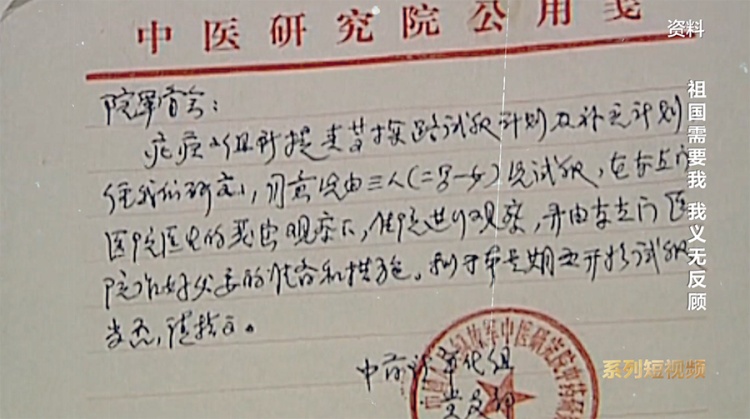 中医研究院公用笺
资料
院军管会:
疟疾小组所提黄芩探路试服计划及补充计划
经我们研究,同意先由三人(二男一女)先试服,在东直门
医院医生的严密观察下,住院进行观察,并由东直门医
院作好必要的准备和措施。拟于本星期五开始试服
当否,请指示。
中药所革化组
祖国需要我 我义无反顾
系列短视频